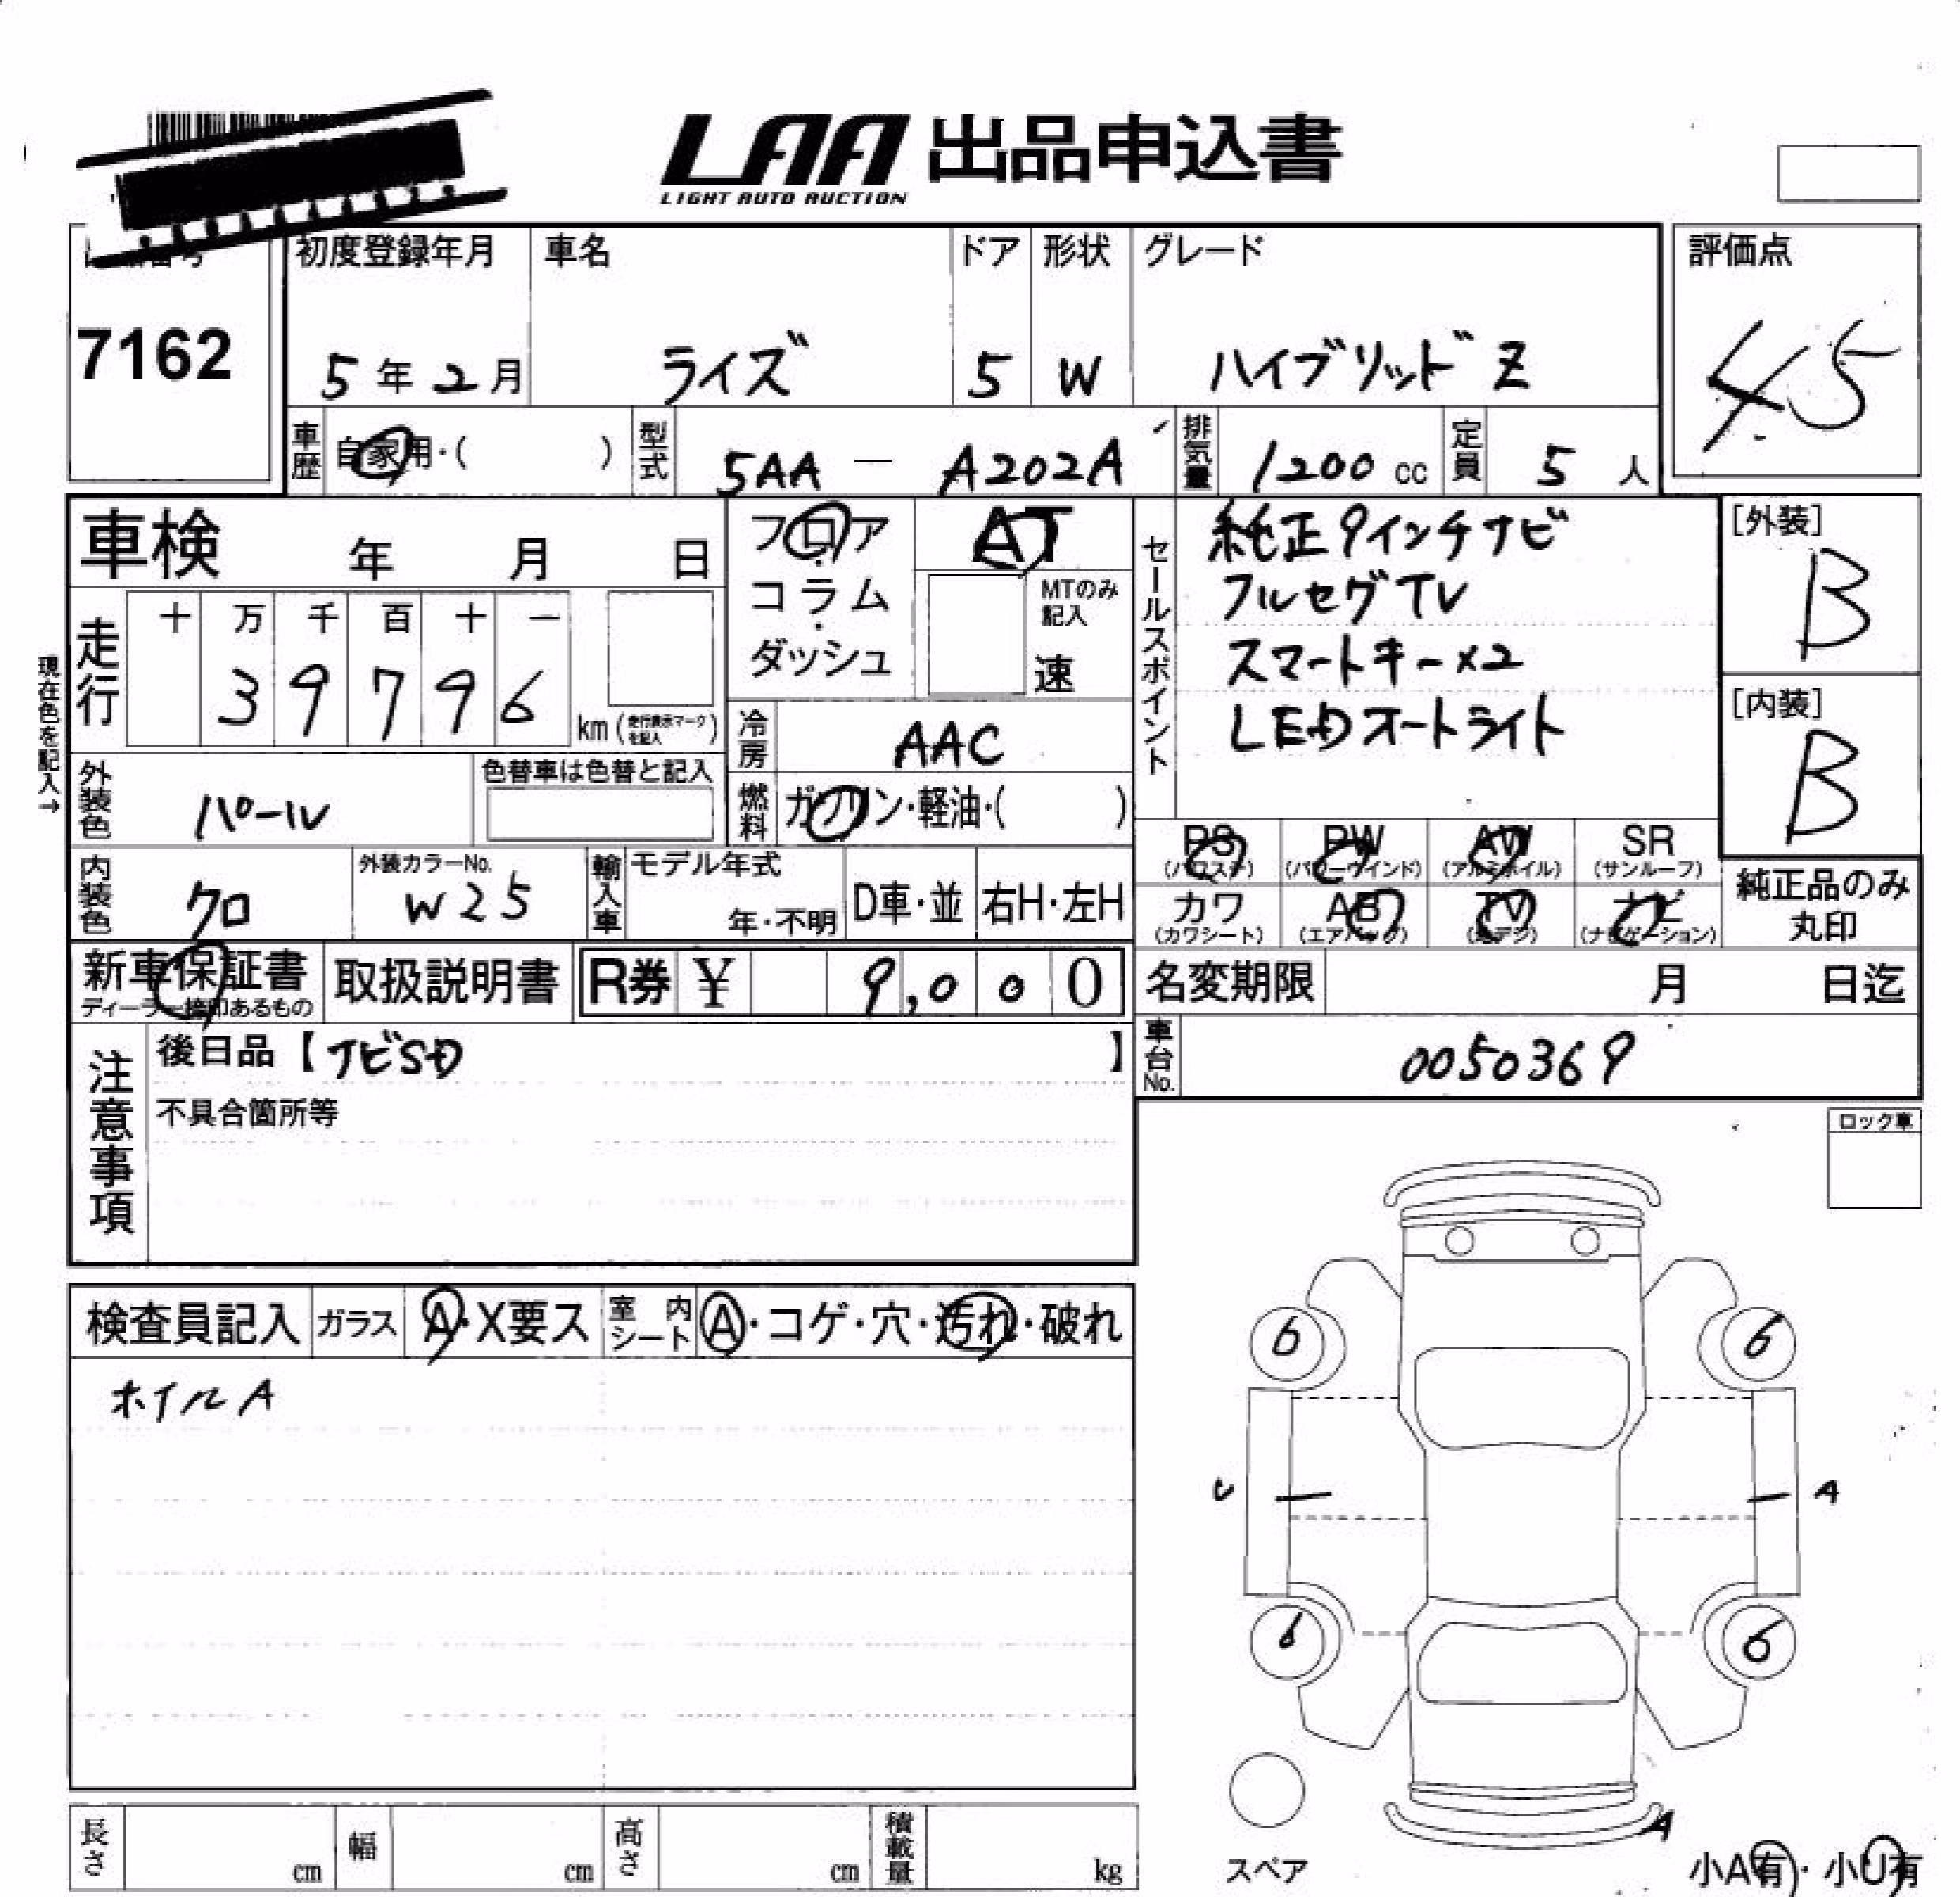 LAA 出品申込書
LIGHT AUTO AUCTION
7162
初度登録年月 車名 ドア 形状 グレード 評価点
5年2月 ライズ 5 W ハイブリッドZ 45
車歴 自家用・( ) 型式 5AA - A202A 排気量 1200cc 定員 5人
車検 年 月 日
フロア・コラム・ダッシュ
AT
MTのみ記入
速
セールスポイント
純正9インチナビ
フルセグTV
スマートキー×2
LEDオートライト
[外装]
B
[内装]
B
現在色を記入→
走行 十 万 千 百 十 一
3 9 7 9 6
km(走行表示マークを記入)
冷房 AAC
外装色 パール 色替車は色替と記入
燃料 ガソリン・軽油・( )
PS PW AW SR
(パワステ) (パワーウインド) (アルミホイル) (サンルーフ)
カワ AB TV ナビ
(カワシート) (エアバック) (地デジ) (ナビゲーション)
純正品のみ
丸印
内装色 クロ 外装カラーNo. W25 輸入車 モデル年式 年・不明 D車・並 右H・左H
新車保証書 取扱説明書 R券 ¥ 9,000
ディーラー捺印あるもの
名変期限 月 日迄
注意事項
後日品【ナビSD】
不具合箇所等
車台No. 0050369
ロック車
検査員記入 ガラス A・X要ス 室内シート A・コゲ・穴・汚れ・破れ
ホイルA
6 6
U A
6 6
A
スペア
小A有・小U有
長さ cm 幅 cm 高さ cm 積載量 kg